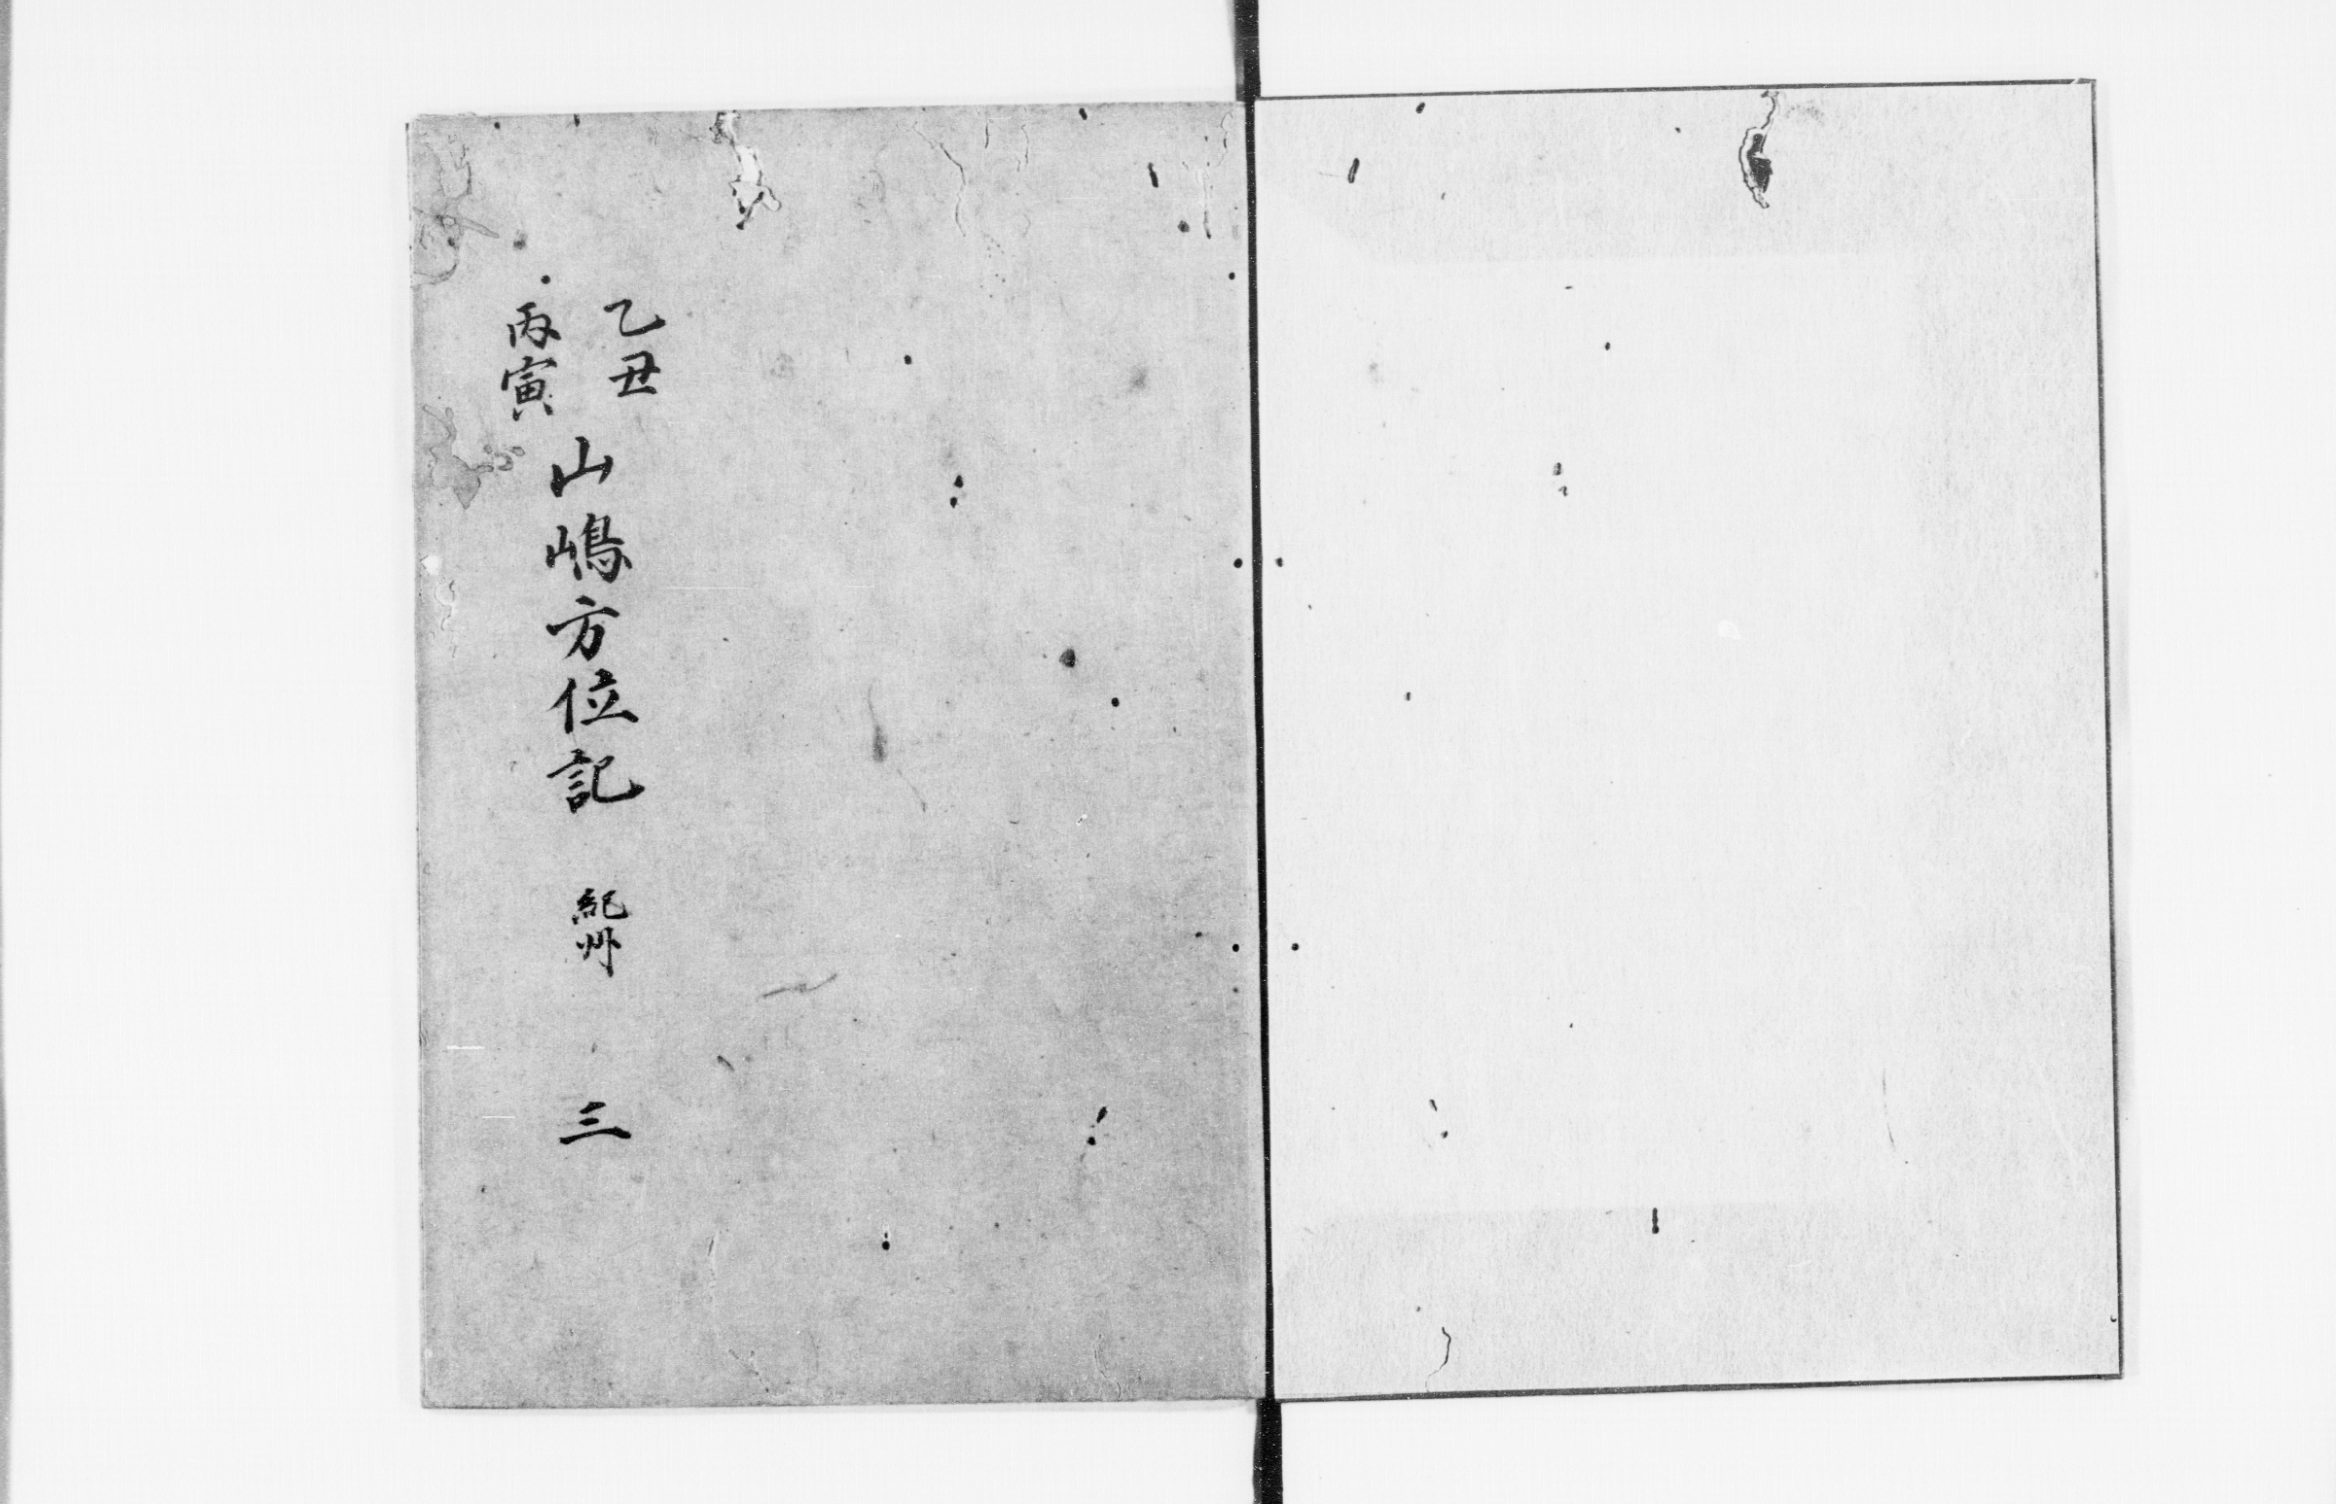 乙丑
丙寅
山嶋方位記 紀州 三